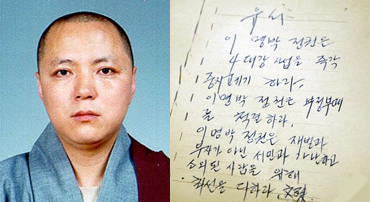 유서
이명박 정권은
4대강 사업을 즉각
중지폐기 하라,
이명박 정권은 부정부패
를 척결하라,
이명박 정권은 재벌과
부자가 아닌 서민과 가난하고
소외된 사람을 위해
최선을 다하라